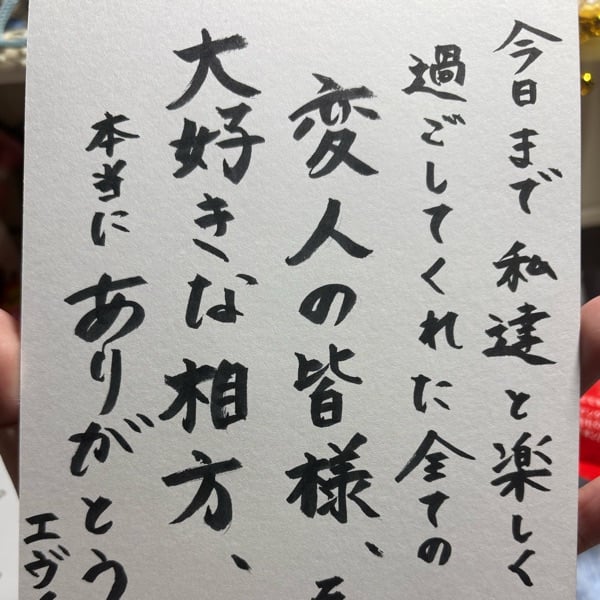 今日まで私達と楽しく
過ごしてくれた全ての
変人の皆様、
大好きな相方、
本当にありがとう
エヴ